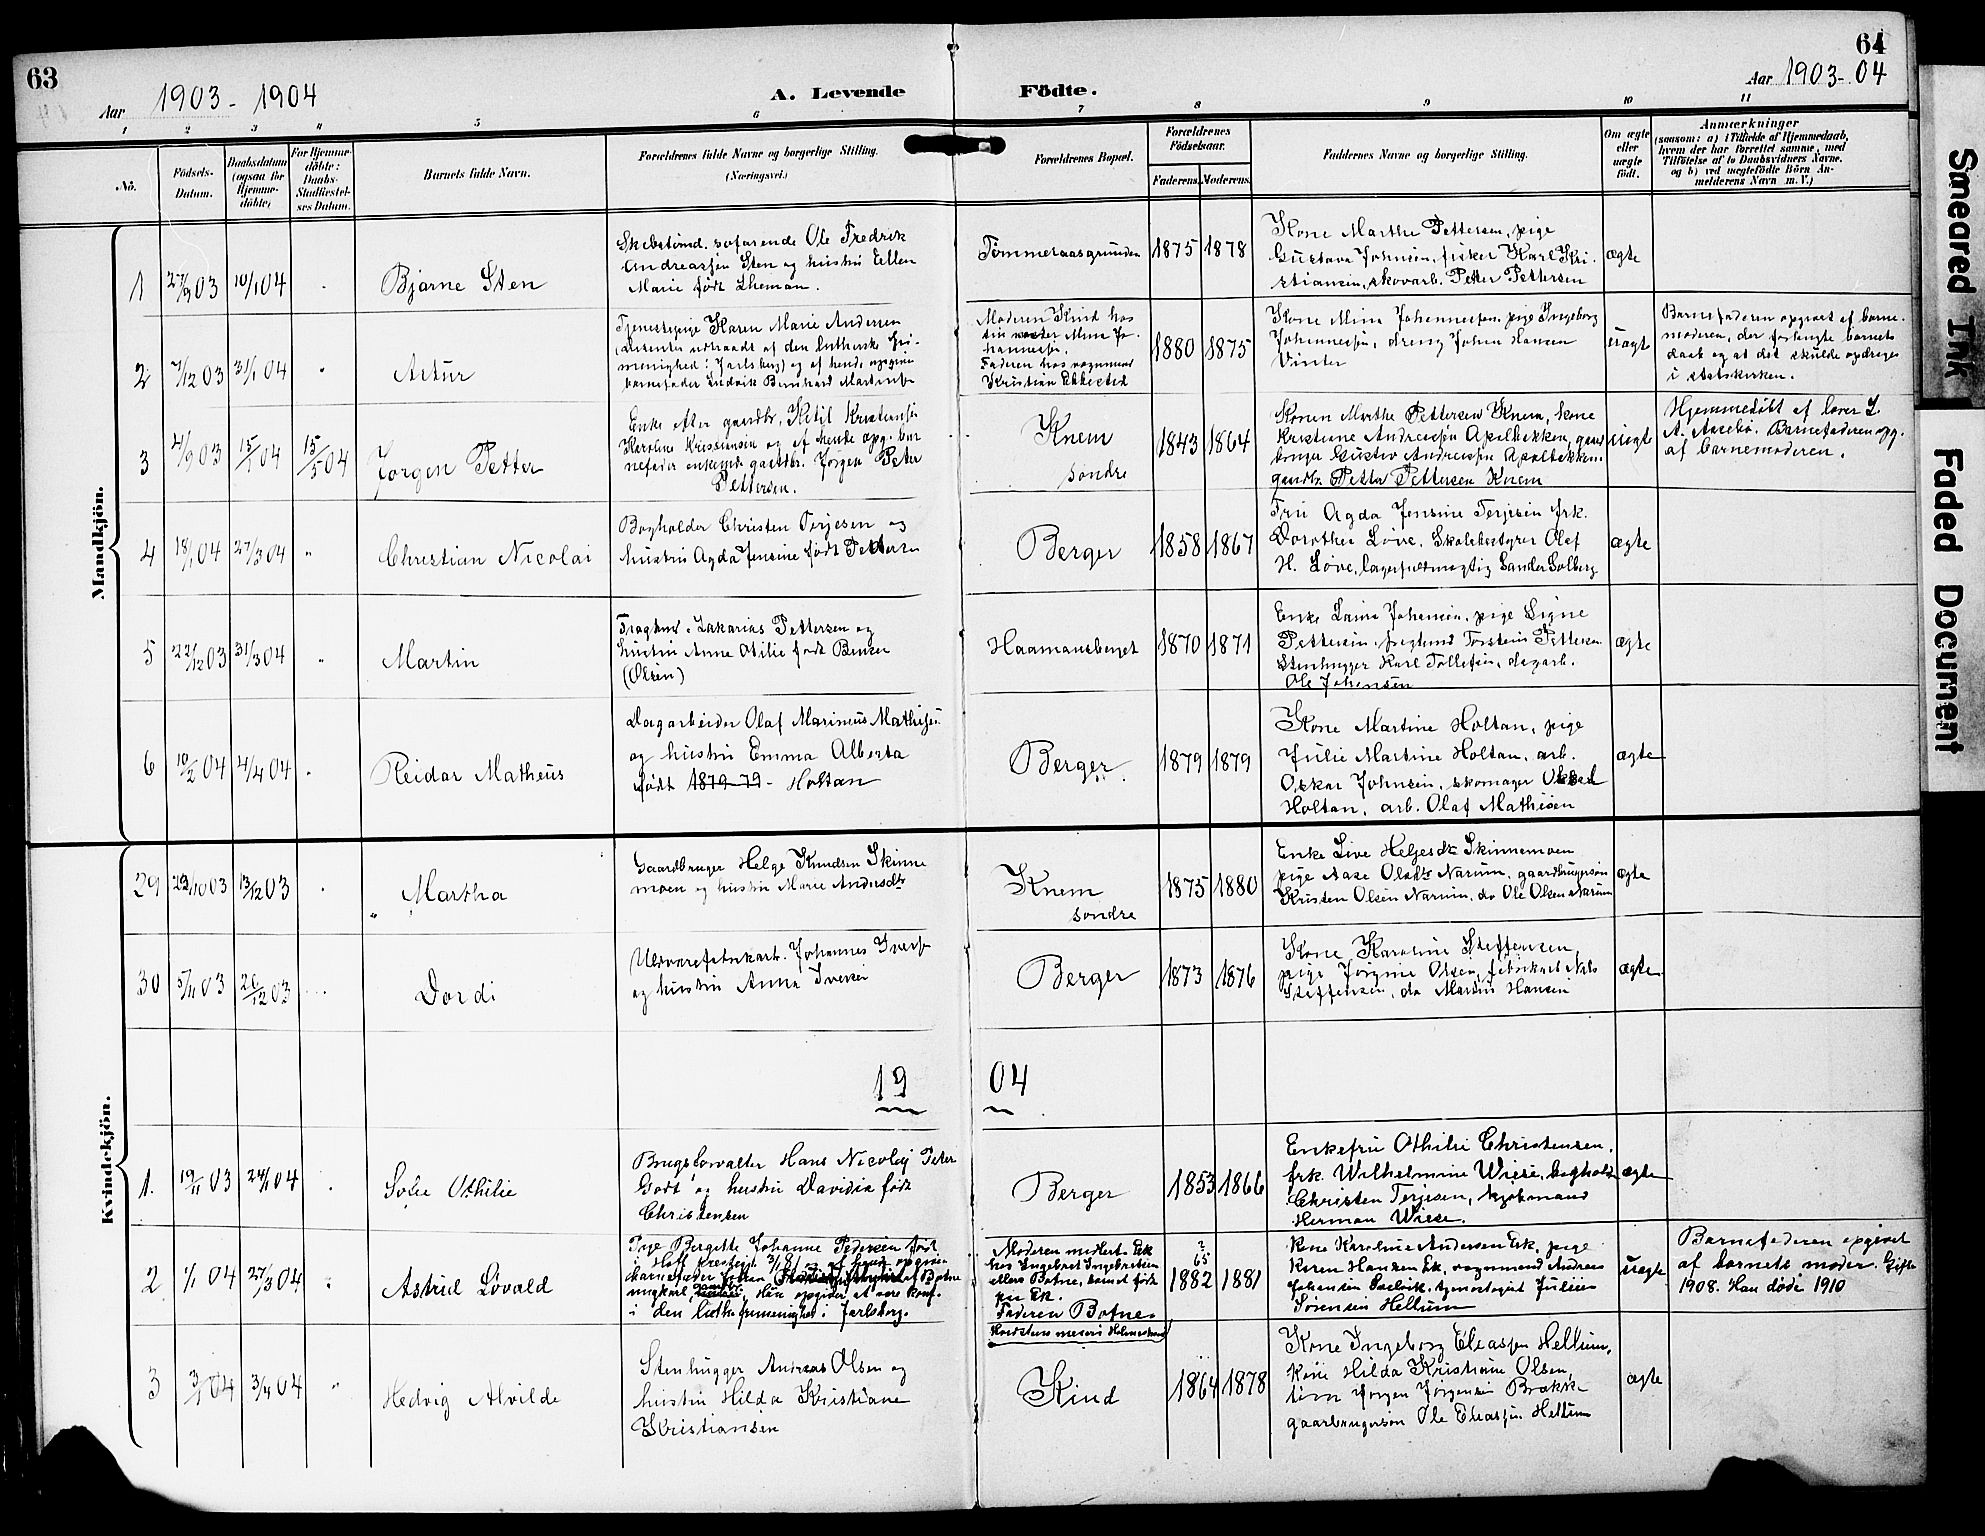 63
Aar 1903 - 1904
A. Levende Födte.
64
Aar 1903-04
1 2 3 4 5 6 7 8 9 10 11
No.
Födsels-Datum.
Daabsdatum (ogsaa for Hjemme-döbte)
For Hjemme-döbte: Daabs-Stadfæstel-ses Datum.
Barnets fulde Navn.
Forældrenes fulde Navne og borgerlige Stilling.
(Næringsvei.)
Forældrenes Bopæl.
Forældrenes Födselsaar.
Faderens. Moderens.
Faddernes Navne og borgerlige Stilling.
Om ægte eller uægte födt.
Anmærkninger
(saasom: a) i Tilfælde af Hjemmedaab,
hvem der har forrettet samme, med
Tilföielse af to Daabsvidners Navne,
og b) ved uægtefödte Börn An-
melderens Navn m. V.)
Mandkjön.
1 27/9 03 10/1 04 Bjarne Sten
søfarende Ole Fredrik
Andreassen Sten og hustru Ellen
Marie født Theman.
Tømmeraasgrunden 1875 1878
Kone Marthe Pettersen, pige
Gustava Johnsen, fisker Karl Kri-
stiansen, skovarb. Petter Pettersen
ægte
2 7/12 03 31/1 04 Artur
Tjenestepige Karen Marie Andersen
(Dissenter udtraadt af den lutherske fri-
menighed i Jarlsberg) og af hende opgiven
barnefader Ludvik Bernhard Martinsen
Moderen Kind hos
sin søster Mina Jo-
hannessen.
Faderen hos vognmand
Kristian Ekkested
1880 1875
Kone Mina Johannessen, pige Ingeborg
Johannessen, dreng Johan Hansen
Vinter
uægte
Barnefaderen opgivet af barne-
moderen, der forlangte barnets
daab og at det skulde opdrages
i statskirken.
3 4/9 03 15/1 04 15/5 04 Jørgen Petter
Enke efter gaardbr. Ketil Kristensen
Karoline Kristensen og af hende opg. bar
nefader enkemd gaardbr. Jørgen Peter
Pettersen.
Knem
søndre
1843 1864
Konen Marthe Pettersen Knem, kone
Kristiane Andreassen Apalbekken, gaard
bruger Gustav Andreassen Apalbekken,
gaardbr. Petter Pettersen Knem
uægte
Hjemmedøbt af lærer L.
A. Aasebø. Barnefaderen opg.
af barnemoderen.
4 18/1 04 27/3 04 " Christian Nicolai
Bogholder Christen Terjesen og
hustru Agda Jensine født Pettersen
Berger 1858 1867
Fru Agda Jensine Terjesen frk.
Dorothea Løve, Skolebestyrer Olaf
H. Løve, lagerfuldmægtig Sander Solberg
ægte
5 22/12 03 31/3 04 " Martin
Zakarias Pettersen og
hustru Anna Otilie født
(Olsen)
Haamansberget 1870 1871
Enke Laura Johansen, pige Signe
Pettersen, Torstein Pettersen
Stenhugger Karl Tollefsen, dagarb.
Ole Johansen
ægte
6 10/2 04 4/4 04 Reidar Matheus
Dagarbeider Olaf Marinius Mathisen
og hustru Emma Alberta
født 1879-79- Holtan
Berger 1879 1879
Kone Martine Holtan, pige
Julie Martine Holtan, arb.
Oskar Johnsen, skomager
Holtan, arb. Olaf Mathisen
ægte
Kvindekjön.
29 29/10 03 13/12 03 Martha
Gaardbruger Helge Knudsen Skinne
moen og hustru Marie Andersdtr
Knem
søndre
1875 1880
Enke Live Helgesdtr Skinnemoen
pige Aase Olsdtr Narum, gaardbrugersøn
Kristen Olsen Narum, do Ole Olsen Narum
ægte
30 5/11 03 26/12 03 Dordi
Uldvarefabrikarb. Johannes Iversen
og hustru Anna Iversen
Berger 1873 1876
Kone Karoline Steffensen,
pige Jørgine Olsen, fabrikarb Nils
Steffensen, do Martin Hansen
ægte
19 04
1. 19/11 03 24/1 04 Othilie
Brugsforvalter Hans Nicolay Peter
Godt og hustru Davidia født
Christensen
Berger 1853 1866
Enkefru Othilie Christensen,
frk. Wilhelmine Wiese, bogholder
Christen Terjesen, kjøbmand
Herman Wiese.
ægte
2 1/1 04 27/3 04 " Astrid Løvald
Pige Bergitte Johanne Pedersen født
barnefader Johan Botne
ungkarl, Hun opgiver at være konf.
i den luth. frimenighed i Jarlsberg.
Moderen Ek
hos Ingebret Ingebretsen
ellers Botne, barnet født
paa Ek.
Faderen Botne.
1882 1881
Kone Karoline Andersen Ek, pige
Karen Hansen Ek, vognmand Andreas
Johansen Julius
Sørensen Hellum
uægte
Barnefaderen opgivet
af barnets moder. Gifte
1908. Han døde 1910
3 3/1 04 3/4 04 " Hedvig Alvilde
Stenhugger Andreas Olsen og
hustru Hilda Kristiane
Kristiansen
Kind 1864 1878
Kone Ingeborg Eliassen Hellum,
kone Hilda Kristiane Olsen,
Jørgen Jørgensen
gaardbrugersøn Ole Eliassen Hellum
ægte
Smeared Ink
Faded Document